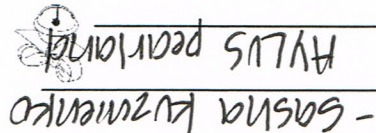 - Sasha Kuzmenko
AYLUS pearland